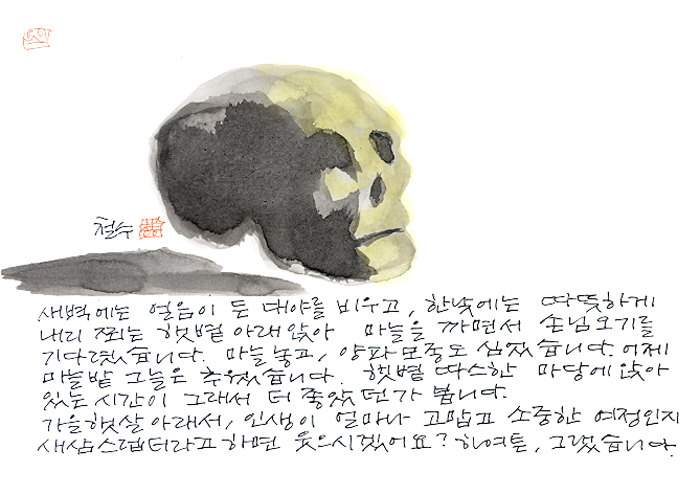 철수
새벽에는 얼음이 든 대야를 비우고, 한낮에는 따뜻하게
내리 쬐는 햇볕 아래 앉아 마늘을 까면서 손님 오기를
기다렸습니다. 마늘 놓고, 양파 모종도 심었습니다. 어제
마늘밭 그늘은 추웠습니다. 햇볕 따스한 마당에 앉아
있는 시간이 그래서 더 좋았던가 봅니다.
가을햇살 아래서, 인생이 얼마나 고맙고 소중한 여정인지
새삼스럽더라고 하면 웃으시겠어요? 하여튼, 그랬습니다.